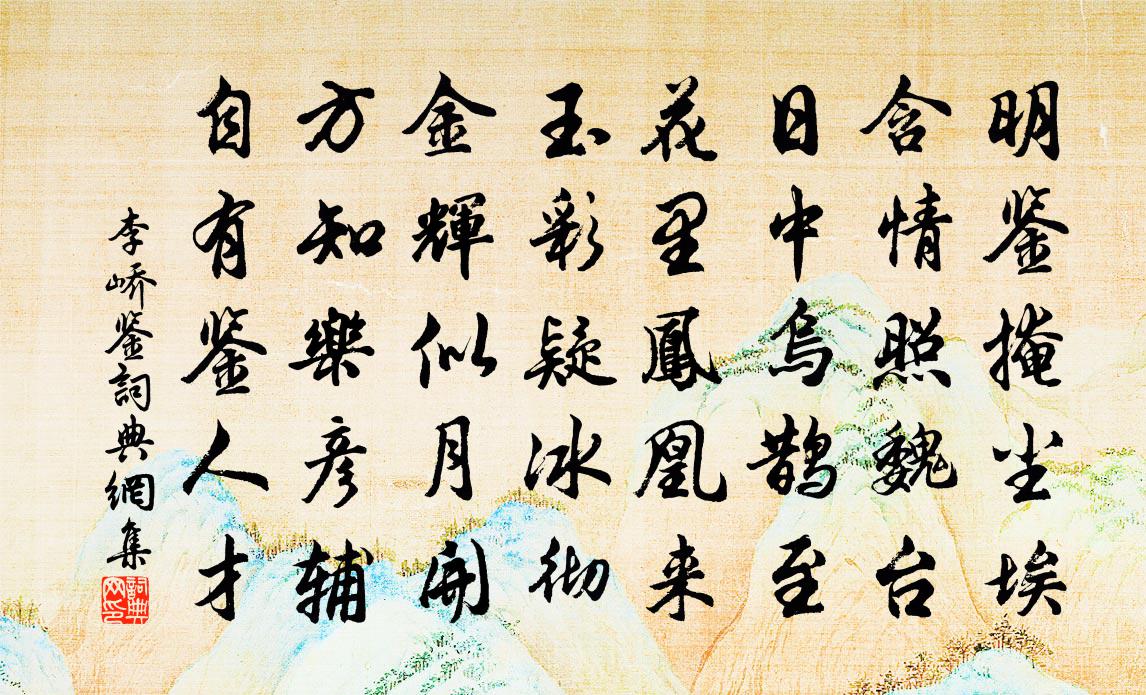 明鉴掩尘埃
含情照魏台
日中乌鹊至
花里鳳凰来
玉彩疑冰彻
金輝似月開
方知樂彦辅
自有鉴人才
李峤鉴詞典網集
詞典网印